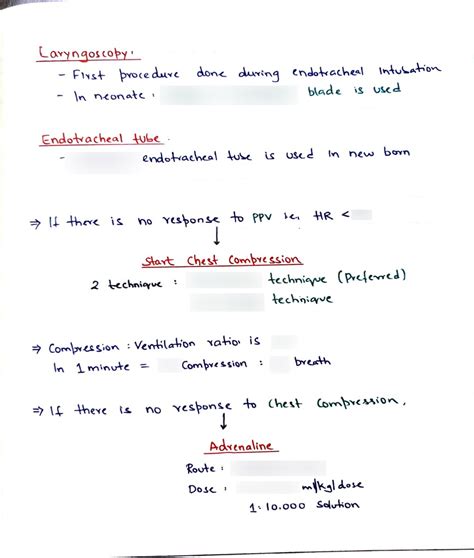 Laryngoscopy.
- First procedure done during endotracheal Intubation
- In neonate : blade is used
Endotracheal tube.
- endotracheal tube is used in new born
⇒ If there is no response to PPV i.e, HR <
↓
Start Chest Compression
2 technique : technique (Preferred)
technique
⇒ Compression : Ventilation ratio is
In 1 minute = Compression : breath
⇒ If there is no response to Chest Compression,
↓
Adrenaline
Route :
Dose : ml/kg/dose
1:10.000 Solution